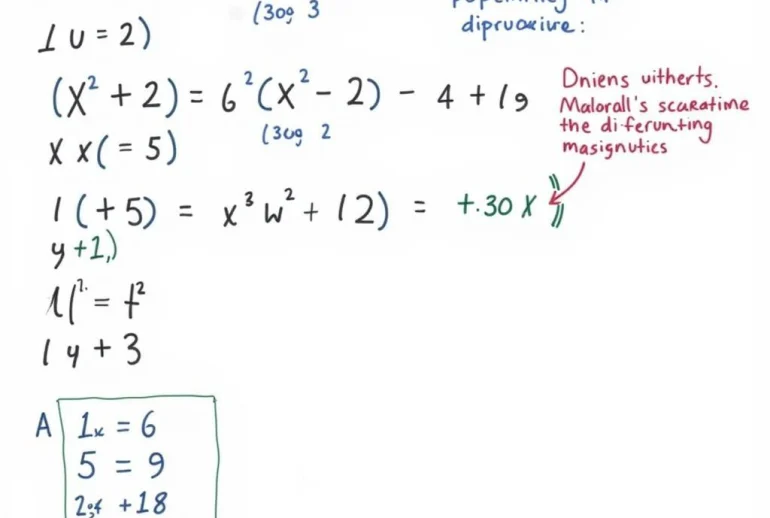 (30g 3
dipruoxire:
1 u = 2)
(x² + 2) = 6²(x² - 2) - 4 + 19
(3ug 2
Dniens uitherts.
Malorall's scuratime
the di-ferunting
masignutics
x x( = 5)
1 (+5) = x³ w² + 12) = +.30 X
y +1,)
= f²
1 y + 3
A
1x = 6
5 = 9
+18